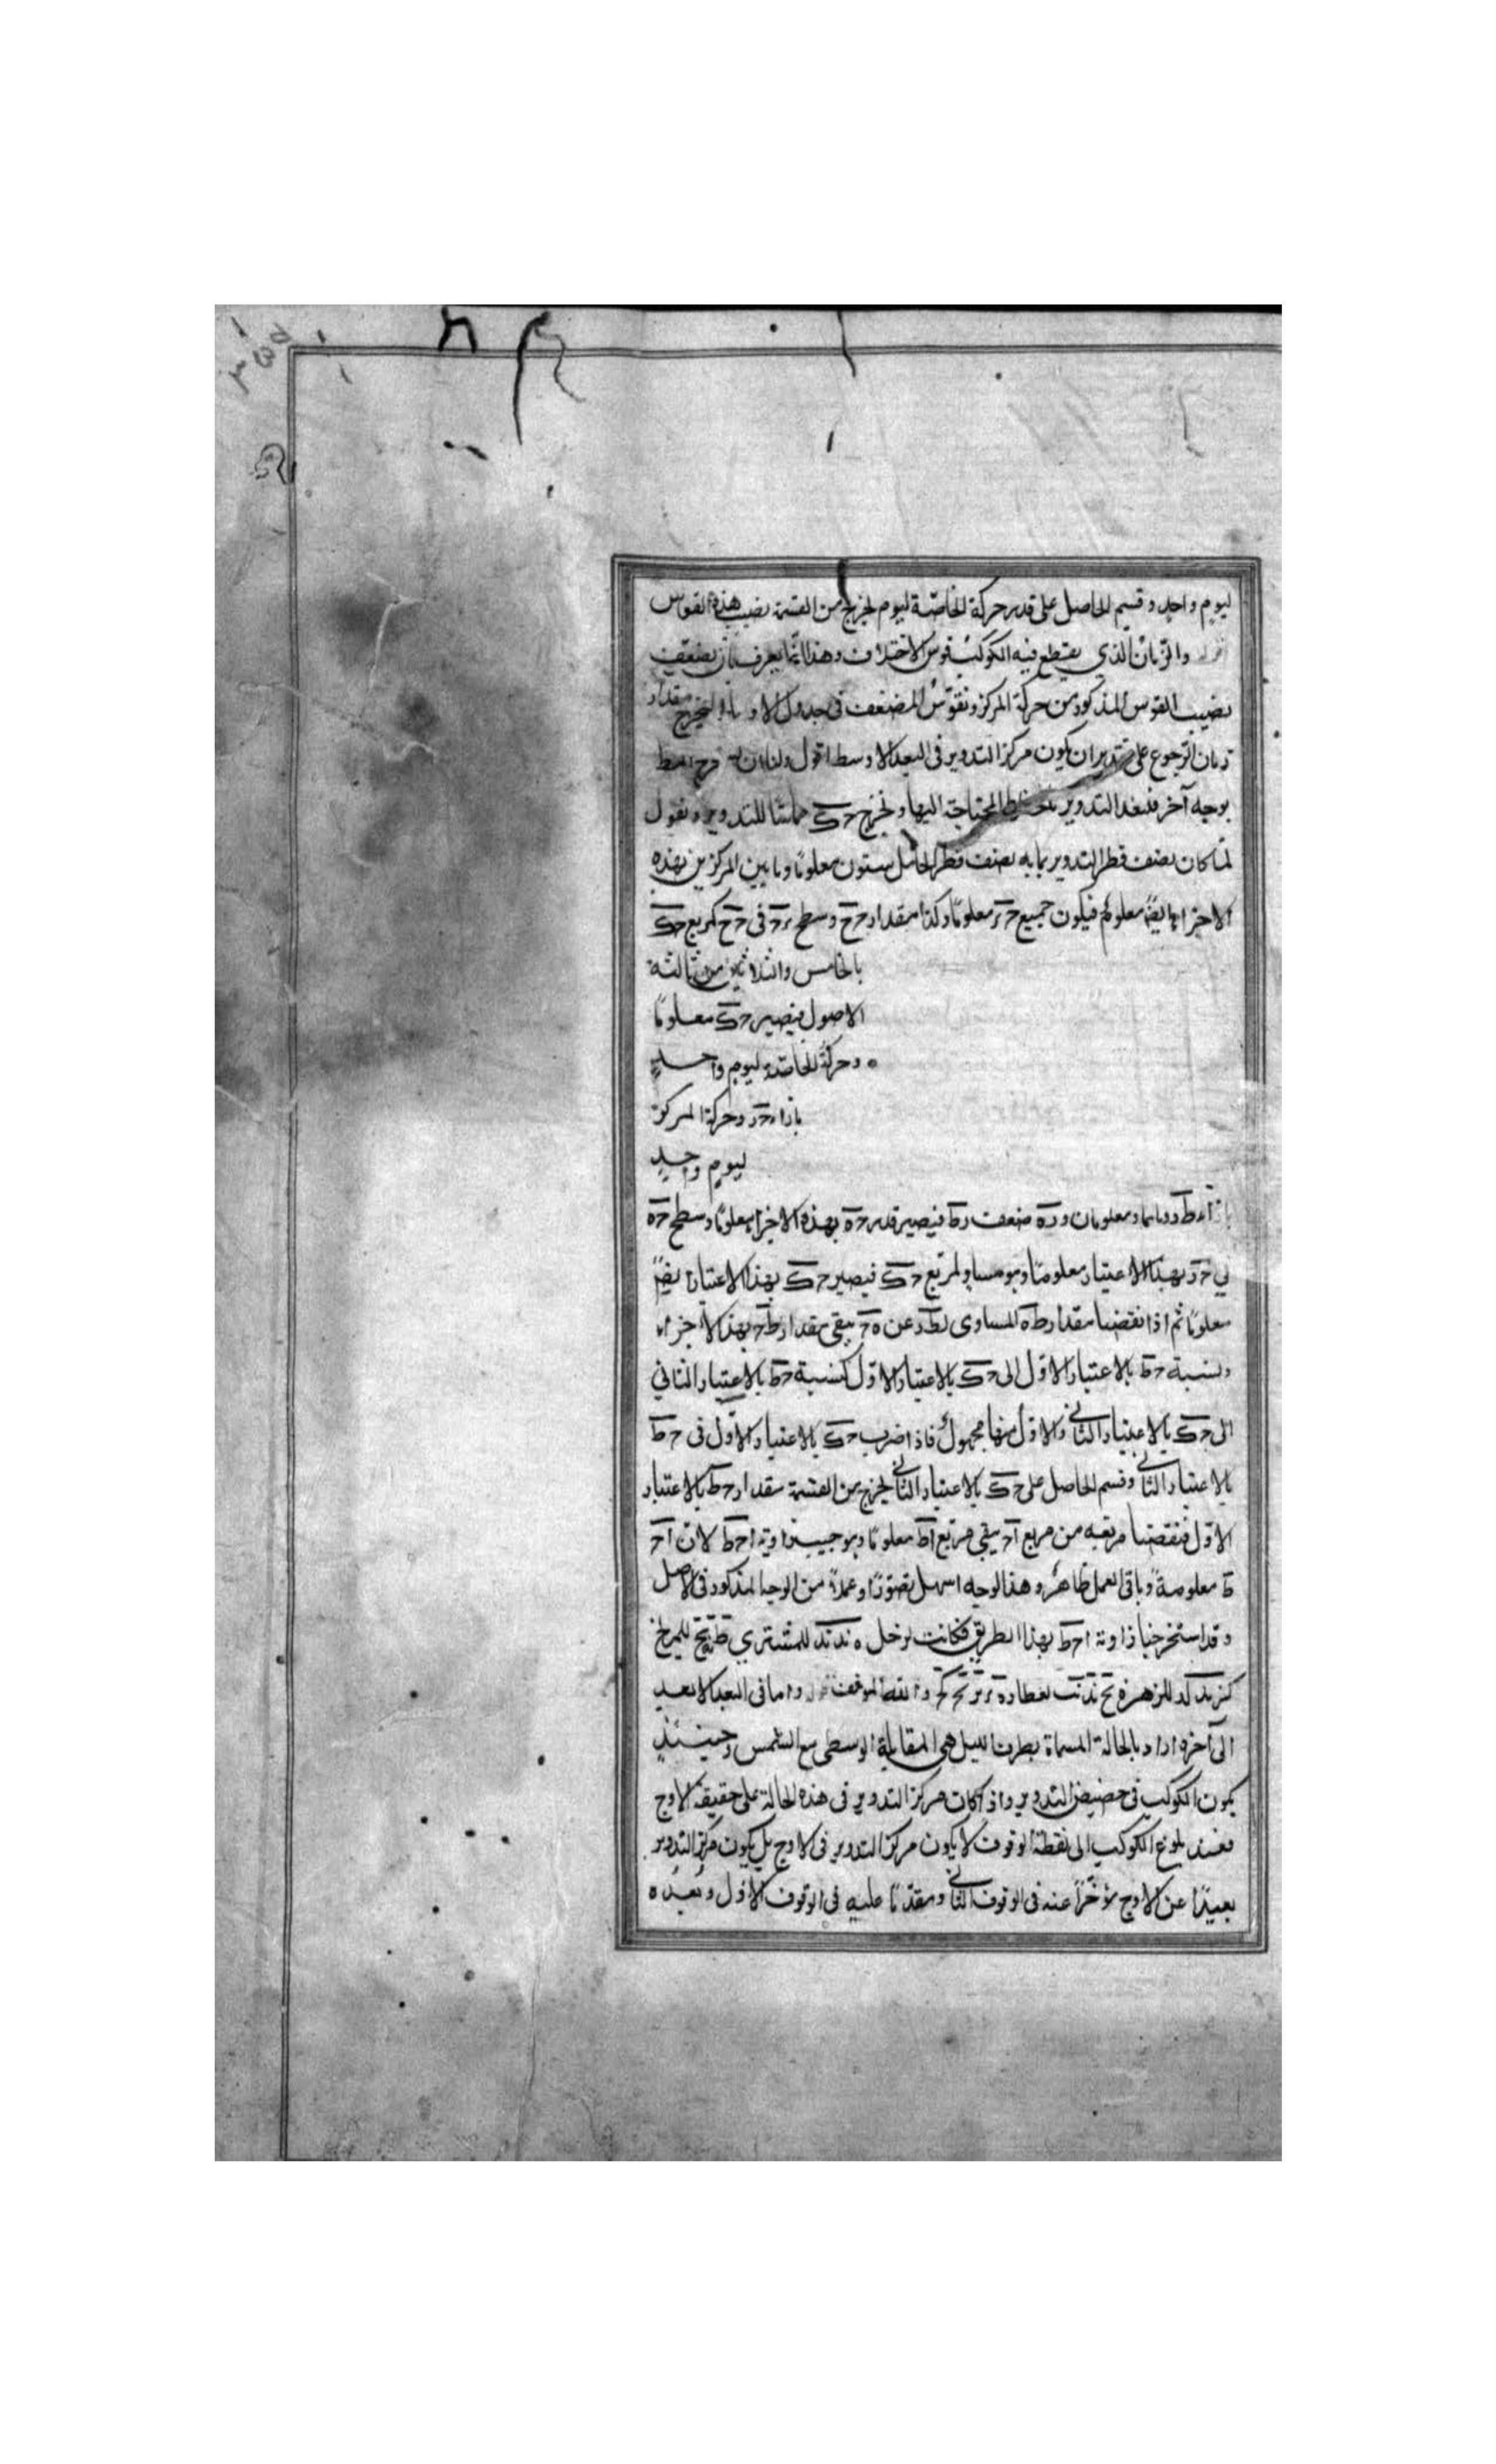 ليوم واحد وقسم الحاصل على قدر حركة الخاصّة ليوم لخرج من القسمة نصيب هذه القوس
والزمان الذي يقطع فيه الكوكب قوس الاختلاف وهذا انما يعرف بان يضعف
نصيب القوس المذكور من حركة المركز ونقوّس المضعف في جدول الاوساط ليخرج مقدار
زمان الرجوع على تقدير ان يكون مركز التدوير في البعد الاوسط اقول ولنا ان
بوجه آخر فنعد التدوير بالخطوط المحتاجة اليها ونخرج حك مماسّا للتدوير ونقول
لمّا كان نصف قطر التدوير بما به نصف قطر الحامل ستون معلومًا وما بين المركزين بهذه
الاجزاء ايضًا معلوم فيكون جميع حر معلومًا وكذا مقدار حح وسطح رح في حح كمربع حك
بالخامس والثلاثين من ثالثة
الاصول فيصير حك معلومًا
وحركة الخاصّة ليوم واحدٍ
بازاء حد وحركة المركز
ليومٍ واحدٍ
بازاء طد وهما معلومان وده ضعف دط فيصير قدر حه بهذه الاجزاء معلومًا وسطح حه
في حد بهذا الاعتبار معلومًا وهو مساوٍ لمربع حك فيصير حك بهذا الاعتبار ايضًا
معلومًا ثم اذا نقصنا مقدار طه المساوي لطد عن ه‍ح يبقى مقدار طح بهذه الاجزاء
ونسبة حط بالاعتبار الاوّل الى حك بالاعتبار الاوّل كنسبة حط بالاعتبار الثاني
الى حك بالاعتبار الثاني والاوّل منها مجهولٌ فاذا ضرب حك بالاعتبار الاوّل في حط
بالاعتبار الثاني وقسم الحاصل على حك بالاعتبار الثاني لخرج من القسمة مقدار حط بالاعتبار
الاوّل فنقصنا مربعه من مربع اح يبقى مربع اط معلومًا وهو جيب زاوية احط لان اح
ط معلومة وباقي العمل ظاهرٌ وهذا الوجه اسهل تصوّرًا وعملًا من الوجه المذكور في الاصل
وقد استخرجنا زاوية احط بهذا الطريق فكانت لزحل ه ند ند للمشتري للمريخ
للزهرة لعطارد واما في البعد الابعد
الى آخره اراد بالحالة المسماة بطرف الليل هي المقابلة الوسطى مع الشمس وحينئذٍ
يكون الكوكب في حضيض التدوير واذا كان مركز التدوير في هذه الحالة على حقيقة الاوج
فعند بلوغ الكوكب الى نقطة الوقوف لا يكون مركز التدوير في الاوج بل يكون مركز التدوير
بعيدًا عن الاوج مؤخّرًا عنه في الوقوف الثاني ومقدّمًا عليه في الوقوف الاوّل وبُعده